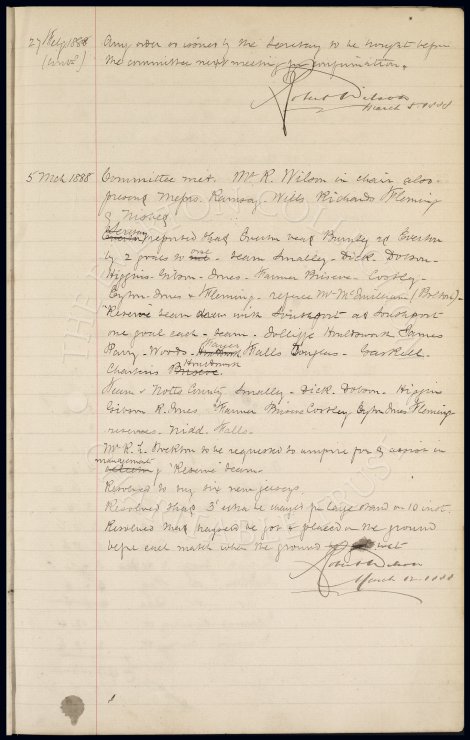 27 Feby 1888 Any order as issued by the Secretary to be brought before
(contd) the committee next meeting for confirmation.
Robert Wilson
March 5 1888
5 Mch 1888 Committee met. Mr R. Wilson in chair also
present Messrs. Ramsay. Wills. Richards Fleming
& Nisbet
Secretary reported that Everton beat Burnley at Everton
by 2 goals to one - team Smalley - Dick. Dobson -
Higgins. Gibson - Jones - Farmer Briscoe - Costley -
Eyton-Jones & Fleming - referee Mr (Bolton) -
"Reserve" team drew with Southport at Southport
one goal each - team - Jolliffe Houldsworth James
Parry - Woods - Falls Douglas - Gaskell
Charters Briscoe Houldsworth
Team v Notts County Smalley - Dick. Dobson - Higgins
Gibson R. Jones Farmer Briscoe Costley Eyton Jones Fleming -
reserves - Nidd. Falls -
Mr R. L. Stockton to be requested to umpire for & assist in
management
of "Reserve" team.
Resolved to buy six new jerseys.
Resolved that 3d extra be charged for large stand on 10 inst.
Resolved that be got & placed on the ground
before each match when the ground is wet
Robert Wilson
March 12 1888